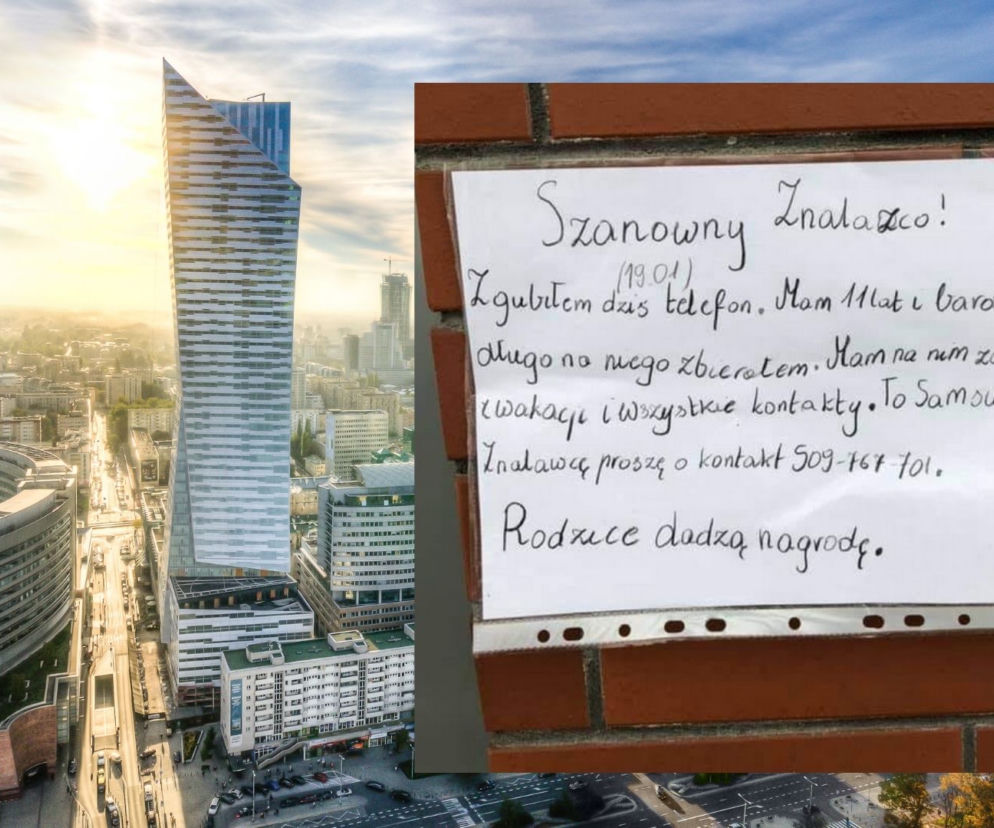 Szanowny Znalazco!
(19.01)
Zgubiłem dziś telefon. Mam 11 lat i
długo na niego zbierałem. Mam na nim
z wakacji i wszystkie kontakty. To
Znalazcę proszę o kontakt 509-767-701.
Rodzice dadzą nagrodę.